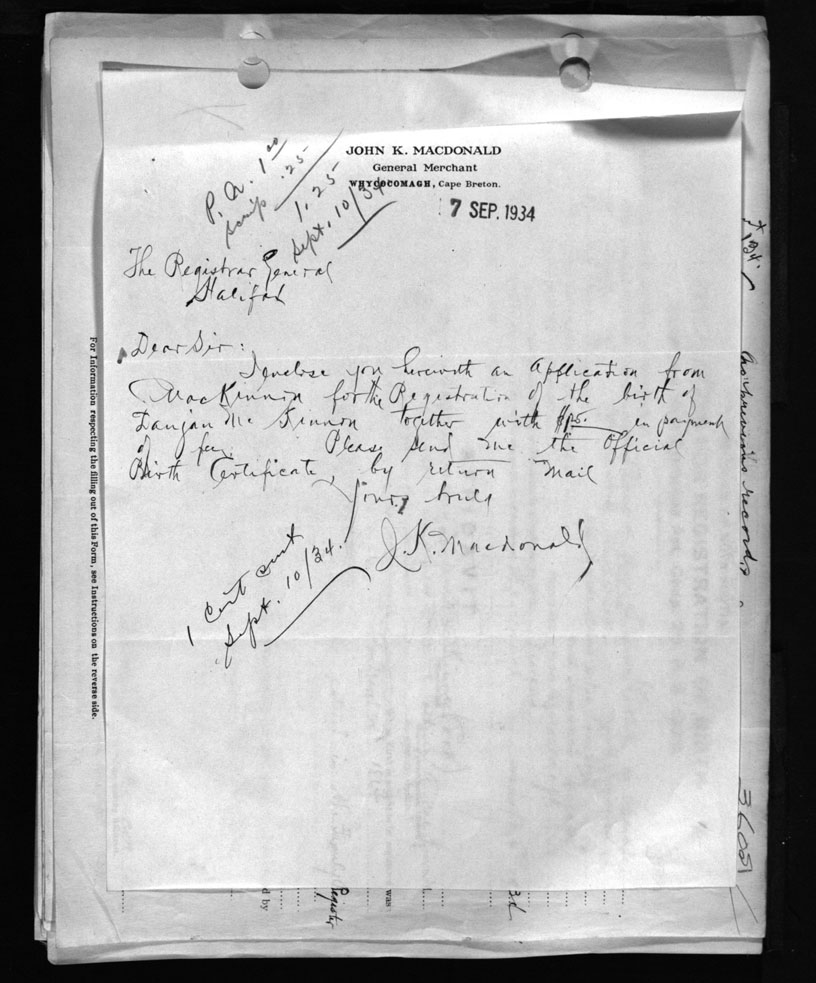 JOHN K. MACDONALD
General Merchant
WHYCOCOMAGH, Cape Breton.
7 SEP. 1934
P. A. 1.00
scrip .25
1.25
Sept. 10/34
The Registrar General
Halifax
Dear Sir:
I enclose you herewith an Application from
MacKinnon for the Registration of the birth of
Mc Kinnon together with in payment
of fee. Please send me the Official
Birth Certificate, by return mail
Yours truly
J. K. Macdonald
1 cert sent
Sept. 10/34.
For Information respecting the filling out of this Form, see Instructions on the reverse side.
records
3608
Register
d by
was